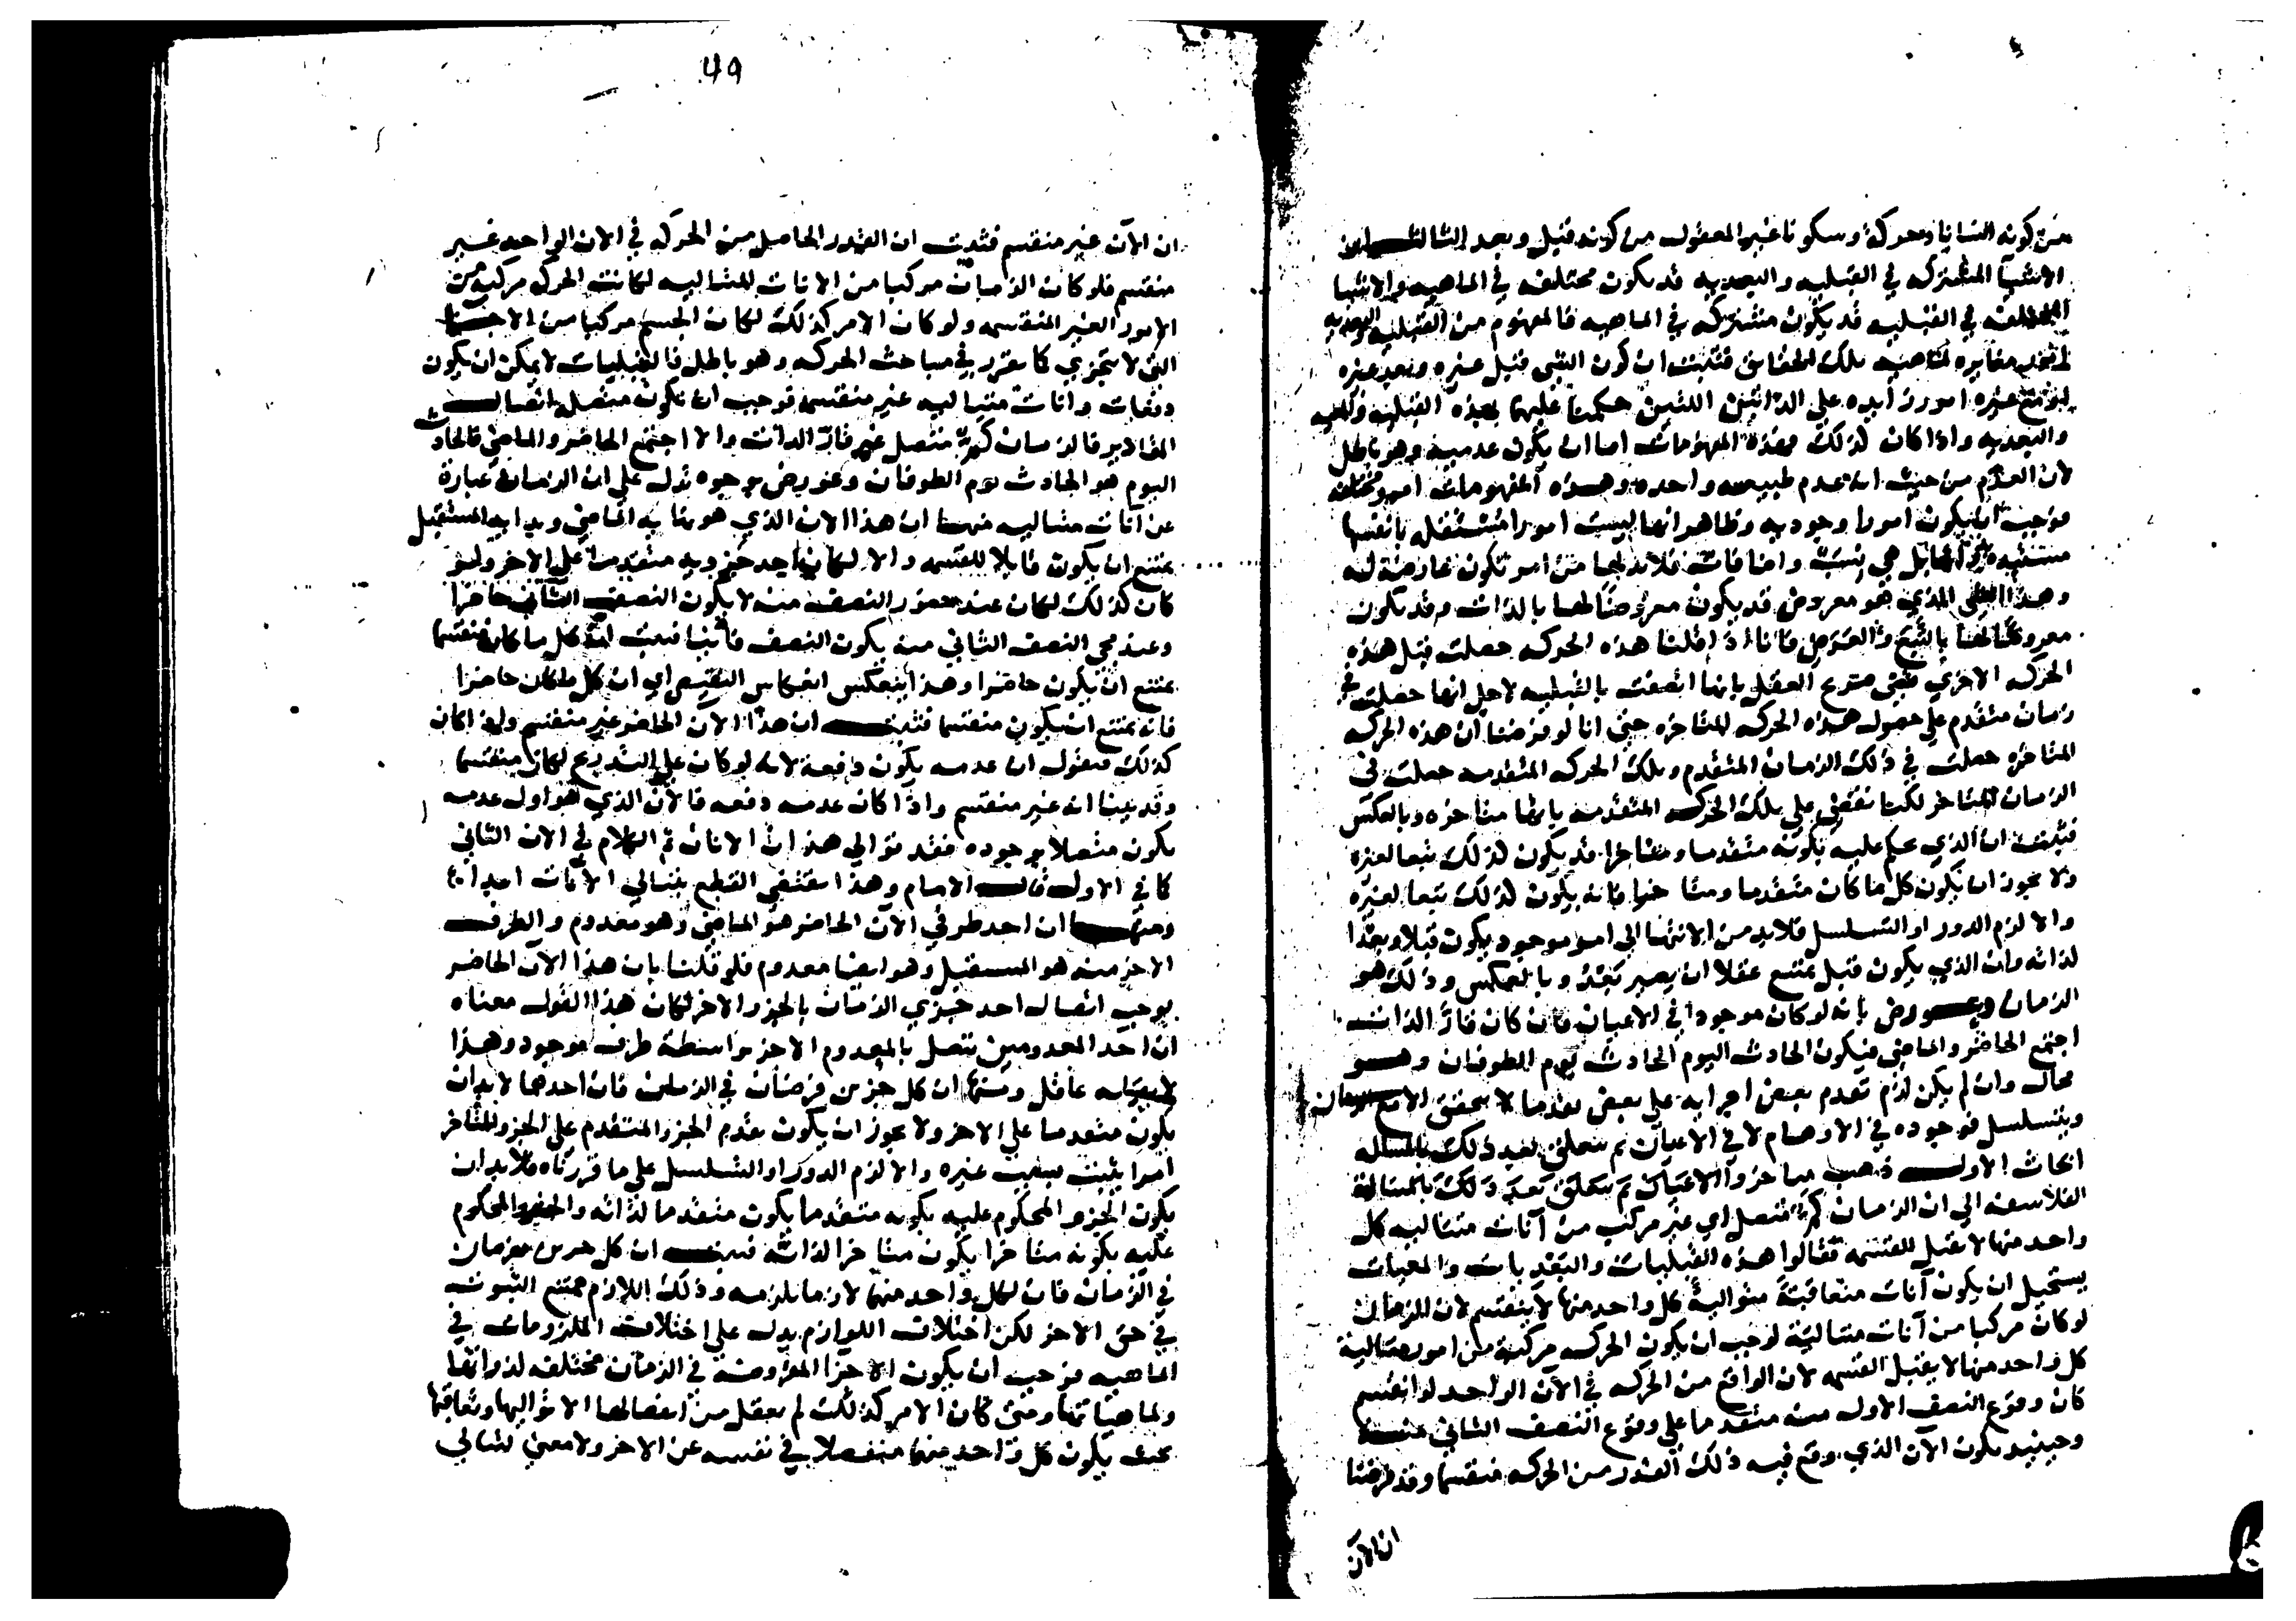 من كونه انسانا وحركة وسكونا غير المعقول من كونه قبل وبعد الثالث ان
الاشيا المشتركه في القبليه والبعديه قد يكون مختلفه في الماهيه والاشيا
المختلفه في القبليه قد يكون مشتركه في الماهيه فالمفهوم من القبليه والبعديه
مغايره لماهيه تلك الحقايق فثبت ان كون الشي قبل غيره وبعد غيره
ومع غيره امور زايده علي الذاتين اللتين حكمنا عليهما بهذه القبليه والمعيه
والبعديه واذا كان كذلك فهذه المفهومات اما ان يكون عدميه وهو باطل
لان العدم من حيث انه عدم طبيعه واحده وهذه المفهومات امور مختلفه
فوجب ان يكون امورا وجوديه وظاهر انها ليست امورا مستقله بانفسها
بل هي نسب واضافات فلا بد لها من امر تكون عارضة له
وهذا الشي الذي هو معروض قد يكون معروضا لها بالذات وقد يكون
معروضا لها بالتبع والعرض فانا اذا قلنا هذه الحركه حصلت قبل هذه
الحركه الاخري فمتى صرح العقل بانها اتصفت بالقبليه لاجل انها حصلت في
زمان متقدم علي حصول هذه الحركه المتاخره حتى انا لو فرضنا ان هذه الحركه
المتاخره حصلت في ذلك الزمان المتقدم وتلك الحركه المتقدمه حصلت في
الزمان المتاخر لكنا نقضي علي تلك الحركه المتقدمه بانها متاخره وبالعكس
فثبت ان الذي حكم عليه بكونه متقدما ومتاخرا قد يكون كذلك تبعا لغيره
ولا يجوز ان يكون كل ما كان متقدما ومتاخرا فانه يكون كذلك تبعا لغيره
والا لزم الدور او التسلسل فلا بد من الانتها الى امر موجود يكون قبلا وبعدا
لذاته وان الذي يكون قبل يمتنع عقلا ان يصير بعد وبالعكس وذلك هو
الزمان وعورض بانه لو كان موجودا في الاعيان فان كان قار الذات
اجتمع الحاضر والماضي فيكون الحادث اليوم الحادث يوم الطوفان وهو
محال وان لم يكن لزم تقدم بعض اجزايه علي بعض تقدما لا يتحقق الا مع الزمان
ويتسلسل فوجوده في الاوهام لا في الاعيان ثم يتعلق بعد ذلك بالمساله
ابحاث الاول ذهب الاعيان ثم يتعلق بعد ذلك بالمسالة
الفلاسفه الى ان الزمان كم متصل اي غير مركب من آنات متتاليه كل
واحد منها لا يقبل القسمه فقالوا هذه القبليات والبعديات والمعيات
يستحيل ان يكون آنات متعاقبة متوالية كل واحد منها لا ينقسم لان الزمان
لو كان مركبا من آنات متتالية لوجب ان يكون الحركه مركبة من امور متتالية
كل واحد منها لا يقبل القسمه لان الواقع من الحركه في الآن الواحد لو انقسم
كان وقوع النصف الاول منه متقدما علي وقوع النصف الثاني منه
وحينيذ يكون الآن الذي وقع فيه ذلك القدر من الحركه منقسما وقد فرضنا
ان الآن
49
ان الآن غير منقسم فثبت ان القدر الحاصل من الحركه في الان الواحد غير
منقسم فلو كان الزمان مركبا من الانات المتتاليه لكانت الحركه مركبه من
الامور الغير المنقسمه ولو كان الامر كذلك لكان الجسم مركبا من الاجزا
التي لا تتجزي كما تقرر في مباحث الحركه وهو باطل فالقبليات لا يمكن ان يكون
دفعات وانات متتاليه غير منقسمه فوجب ان تكون متصله اتصال
المقادير فالزمان كم متصل غير قار الذات والا اجتمع الحاضر والماضي فالحادث
اليوم هو الحادث يوم الطوفان وعورض بوجوه تدل علي ان الزمان عبارة
عن آنات متتاليه منها ان هذا الان الذي هو نهايه الماضي وبدايه المستقبل
يمتنع ان يكون قابلا للقسمه والا لكان احد جزويه متقدما علي الاخر ولو
كان كذلك لكان عند حضور النصف منه لا يكون النصف الثاني حاضرا
وعند مجي النصف الثاني منه يكون النصف فايتا فثبت ان كل ما كان منقسما
يمتنع ان يكون حاضرا وهذا ينعكس انعكاس النقيض اي ان كل ما كان حاضرا
فانه يمتنع ان يكون منقسما فثبت ان هذا الآن الحاضر غير منقسم واذا كان
كذلك فنقول ان عدمه يكون دفعة لانه لو كان علي التدريج لكان منقسما
وقد بينا انه غير منقسم واذا كان عدمه دفعه فالآن الذي هو اول عدمه
يكون متصلا بوجوده فقد توالي هذان الانان ثم الكلام في الان الثاني
كما في الاول قال الامام وهذا يقتضي القطع بتتالي الآنات ابدا
ومنها ان احد طرفي الآن الحاضر هو الماضي وهو معدوم والطرف
الاخر منه هو المستقبل وهو ايضا معدوم فلو قلنا بان هذا الآن الحاضر
يوجب اتصال احد جزوي الزمان بالجزو الاخر لكان هذا القول معناه
ان احد المعدومين يتصل بالمعدوم الاخر بواسطة طرف موجود وهذا
لا يقوله عاقل ومنها ان كل جزين فرضنا في الزمان فان احدهما لا بد ان
يكون متقدما علي الاخر ولا يجوز ان يكون تقدم الجزو المتقدم علي الجزو المتاخر
امرا يثبت بسبب غيره والا لزم الدور او التسلسل علي ما قررناه فلا بد ان
يكون الجزو المحكوم عليه بكونه متقدما يكون متقدما لذاته والجزو المحكوم
عليه بكونه متاخرا يكون متاخرا لذاته فثبت ان كل جزين يفرضان
في الزمان فان لكل واحد منهما لازما يلزمه وذلك اللازم ممتنع الثبوت
في حق الاخر لكن اختلاف اللوازم يدل علي اختلاف الملزومات في
الماهيه فوجب ان يكون الاجزا المفروضة في الزمان مختلفه لذواتها
ولماهياتها ومتى كان الامر كذلك لم يعقل من اتصالها الا تواليها وتعاقبها
بحيث يكون كل واحد منهما منفصلا في نفسه عن الاخر ولا معنى لتتالي